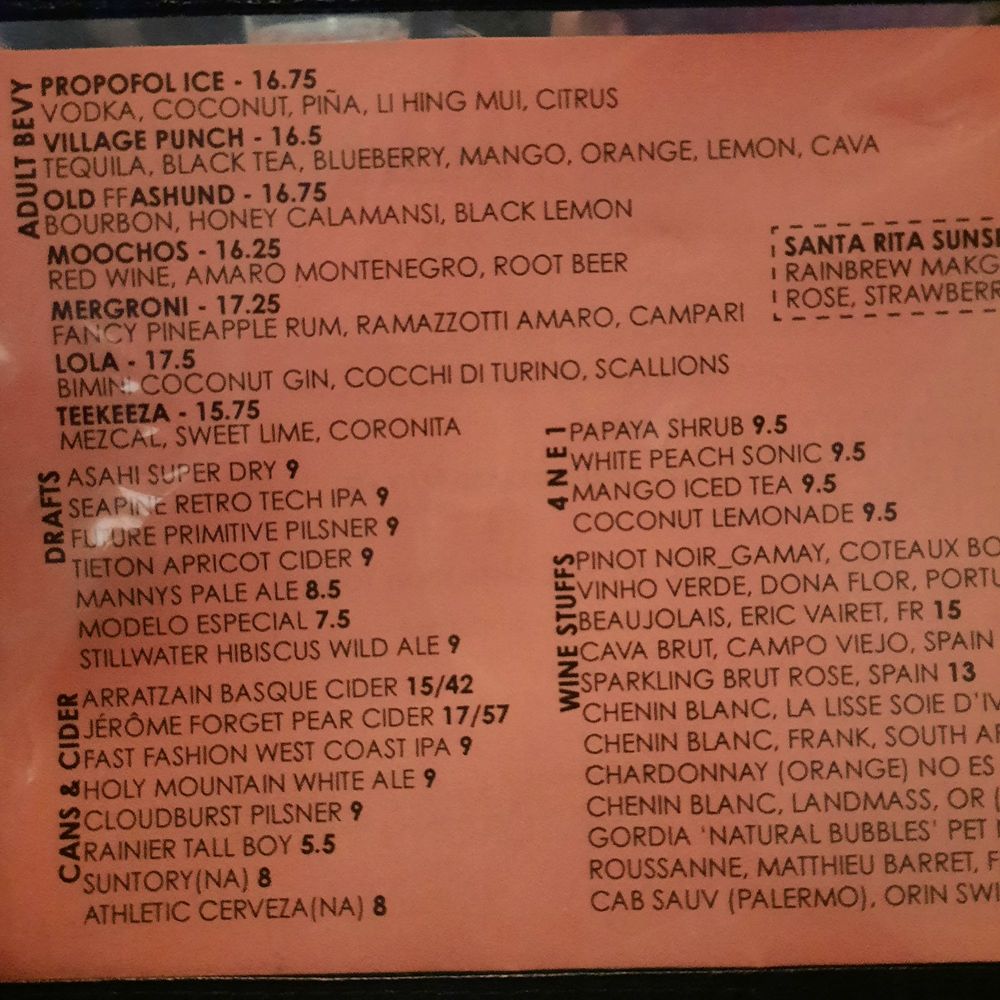 ADULT BEVY
PROPOFOL ICE - 16.75
VODKA, COCONUT, PIÑA, LI HING MUI, CITRUS
VILLAGE PUNCH - 16.5
TEQUILA, BLACK TEA, BLUEBERRY, MANGO, ORANGE, LEMON, CAVA
OLD FFASHUND - 16.75
BOURBON, HONEY CALAMANSI, BLACK LEMON
MOOCHOS - 16.25
RED WINE, AMARO MONTENEGRO, ROOT BEER
MERGRONI - 17.25
FANCY PINEAPPLE RUM, RAMAZZOTTI AMARO, CAMPARI
LOLA - 17.5
BIMINI COCONUT GIN, COCCHI DI TURINO, SCALLIONS
TEEKEEZA - 15.75
MEZCAL, SWEET LIME, CORONITA
SANTA RITA
RAINBREW
ROSE,
DRAFTS
ASAHI SUPER DRY 9
SEAPINE RETRO TECH IPA 9
FUTURE PRIMITIVE PILSNER 9
TIETON APRICOT CIDER 9
MANNYS PALE ALE 8.5
MODELO ESPECIAL 7.5
STILLWATER HIBISCUS WILD ALE 9
CANS & CIDER
ARRATZAIN BASQUE CIDER 15/42
JÉRÔME FORGET PEAR CIDER 17/57
FAST FASHION WEST COAST IPA 9
HOLY MOUNTAIN WHITE ALE 9
CLOUDBURST PILSNER 9
RAINIER TALL BOY 5.5
SUNTORY(NA) 8
ATHLETIC CERVEZA(NA) 8
4 N E 1
PAPAYA SHRUB 9.5
WHITE PEACH SONIC 9.5
MANGO ICED TEA 9.5
COCONUT LEMONADE 9.5
WINE STUFFS
PINOT NOIR_GAMAY, COTEAUX
VINHO VERDE, DONA FLOR,
BEAUJOLAIS, ERIC VAIRET, FR 15
CAVA BRUT, CAMPO VIEJO, SPAIN
SPARKLING BRUT ROSE, SPAIN 13
CHENIN BLANC, LA LISSE SOIE
CHENIN BLANC, FRANK, SOUTH
CHARDONNAY (ORANGE) NO ES
CHENIN BLANC, LANDMASS, OR
GORDIA 'NATURAL BUBBLES' PET
ROUSSANNE, MATTHIEU BARRET,
CAB SAUV (PALERMO), ORIN